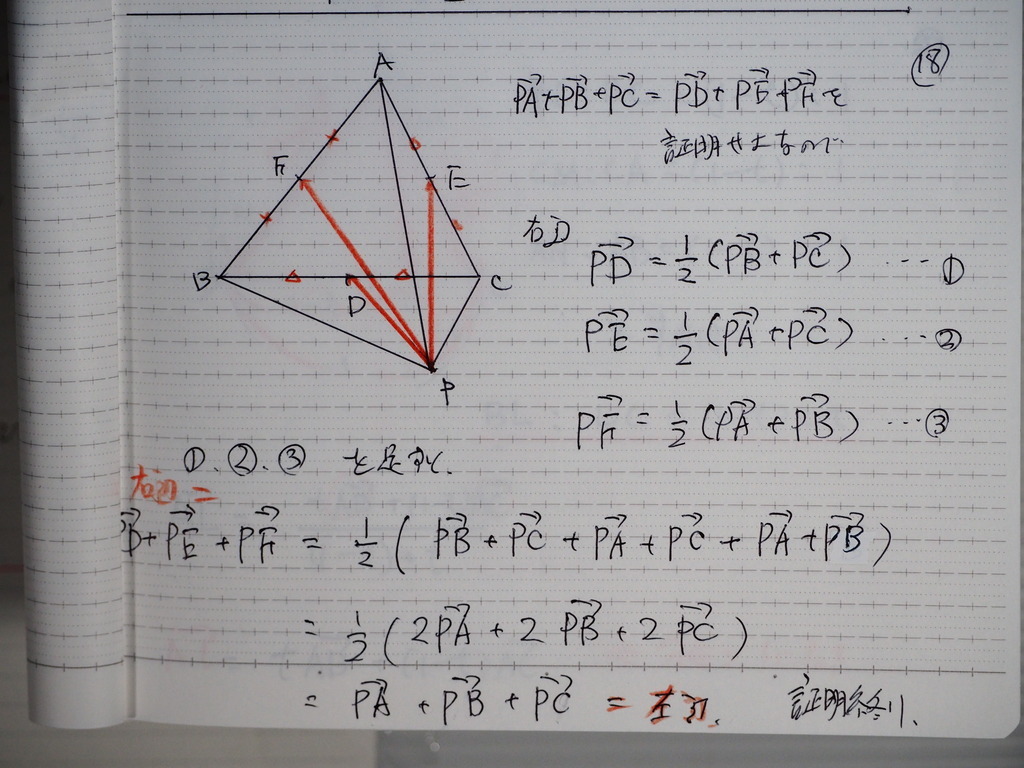 ⑱
A
F
E
B
D
C
P
PA→+PB→+PC→=PD→+PE→+PF→を
証明せよなので
右辺
PD→=1/2(PB→+PC→) ･･･①
PE→=1/2(PA→+PC→) ･･･②
PF→=1/2(PA→+PB→) ･･･③
①.②.③ を足すと.
右辺=
PD→+PE→+PF→=1/2(PB→+PC→+PA→+PC→+PA→+PB→)
=1/2(2PA→+2PB→+2PC→)
=PA→+PB→+PC→=左辺. 証明終り.